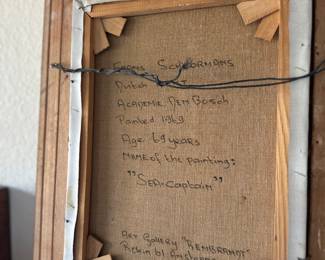 Schoormans
Dutch
Academie Den Bosch
Painted 1969
Age 69 years
Name of the painting:
"Sea-Captain"
Art Gallery "Rembrandt"
Rokin 61 Amsterdam